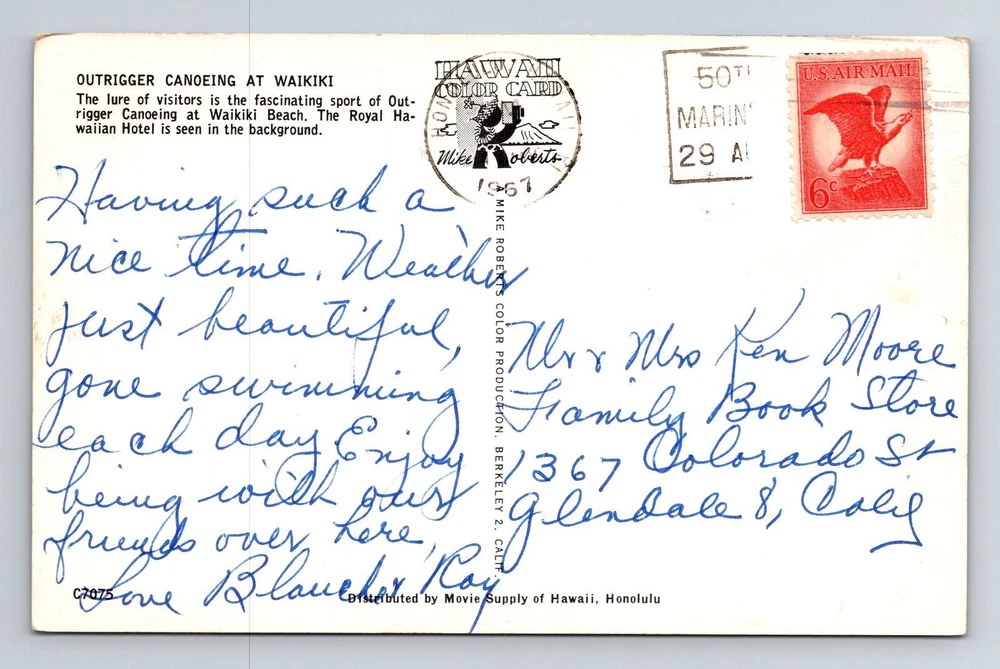 OUTRIGGER CANOEING AT WAIKIKI
The lure of visitors is the fascinating sport of Out-
rigger Canoeing at Waikiki Beach. The Royal Ha-
waiian Hotel is seen in the background.
HAWAII
COLOR CARD
Mike Roberts
1967
50TH
MARIN
29 AU
U.S. AIR MAIL
6c
Having such a
nice time. Weather
just beautiful,
gone swimming
each day. Enjoy
being with our
friends over here,
Love Blanche & Ray
MIKE ROBERTS COLOR PRODUCTION, BERKELEY 2, CALIF.
Mr & Mrs Ken Moore
Family Book Store
1367 Colorado St
Glendale 8, Calif
C7075
Distributed by Movie Supply of Hawaii, Honolulu